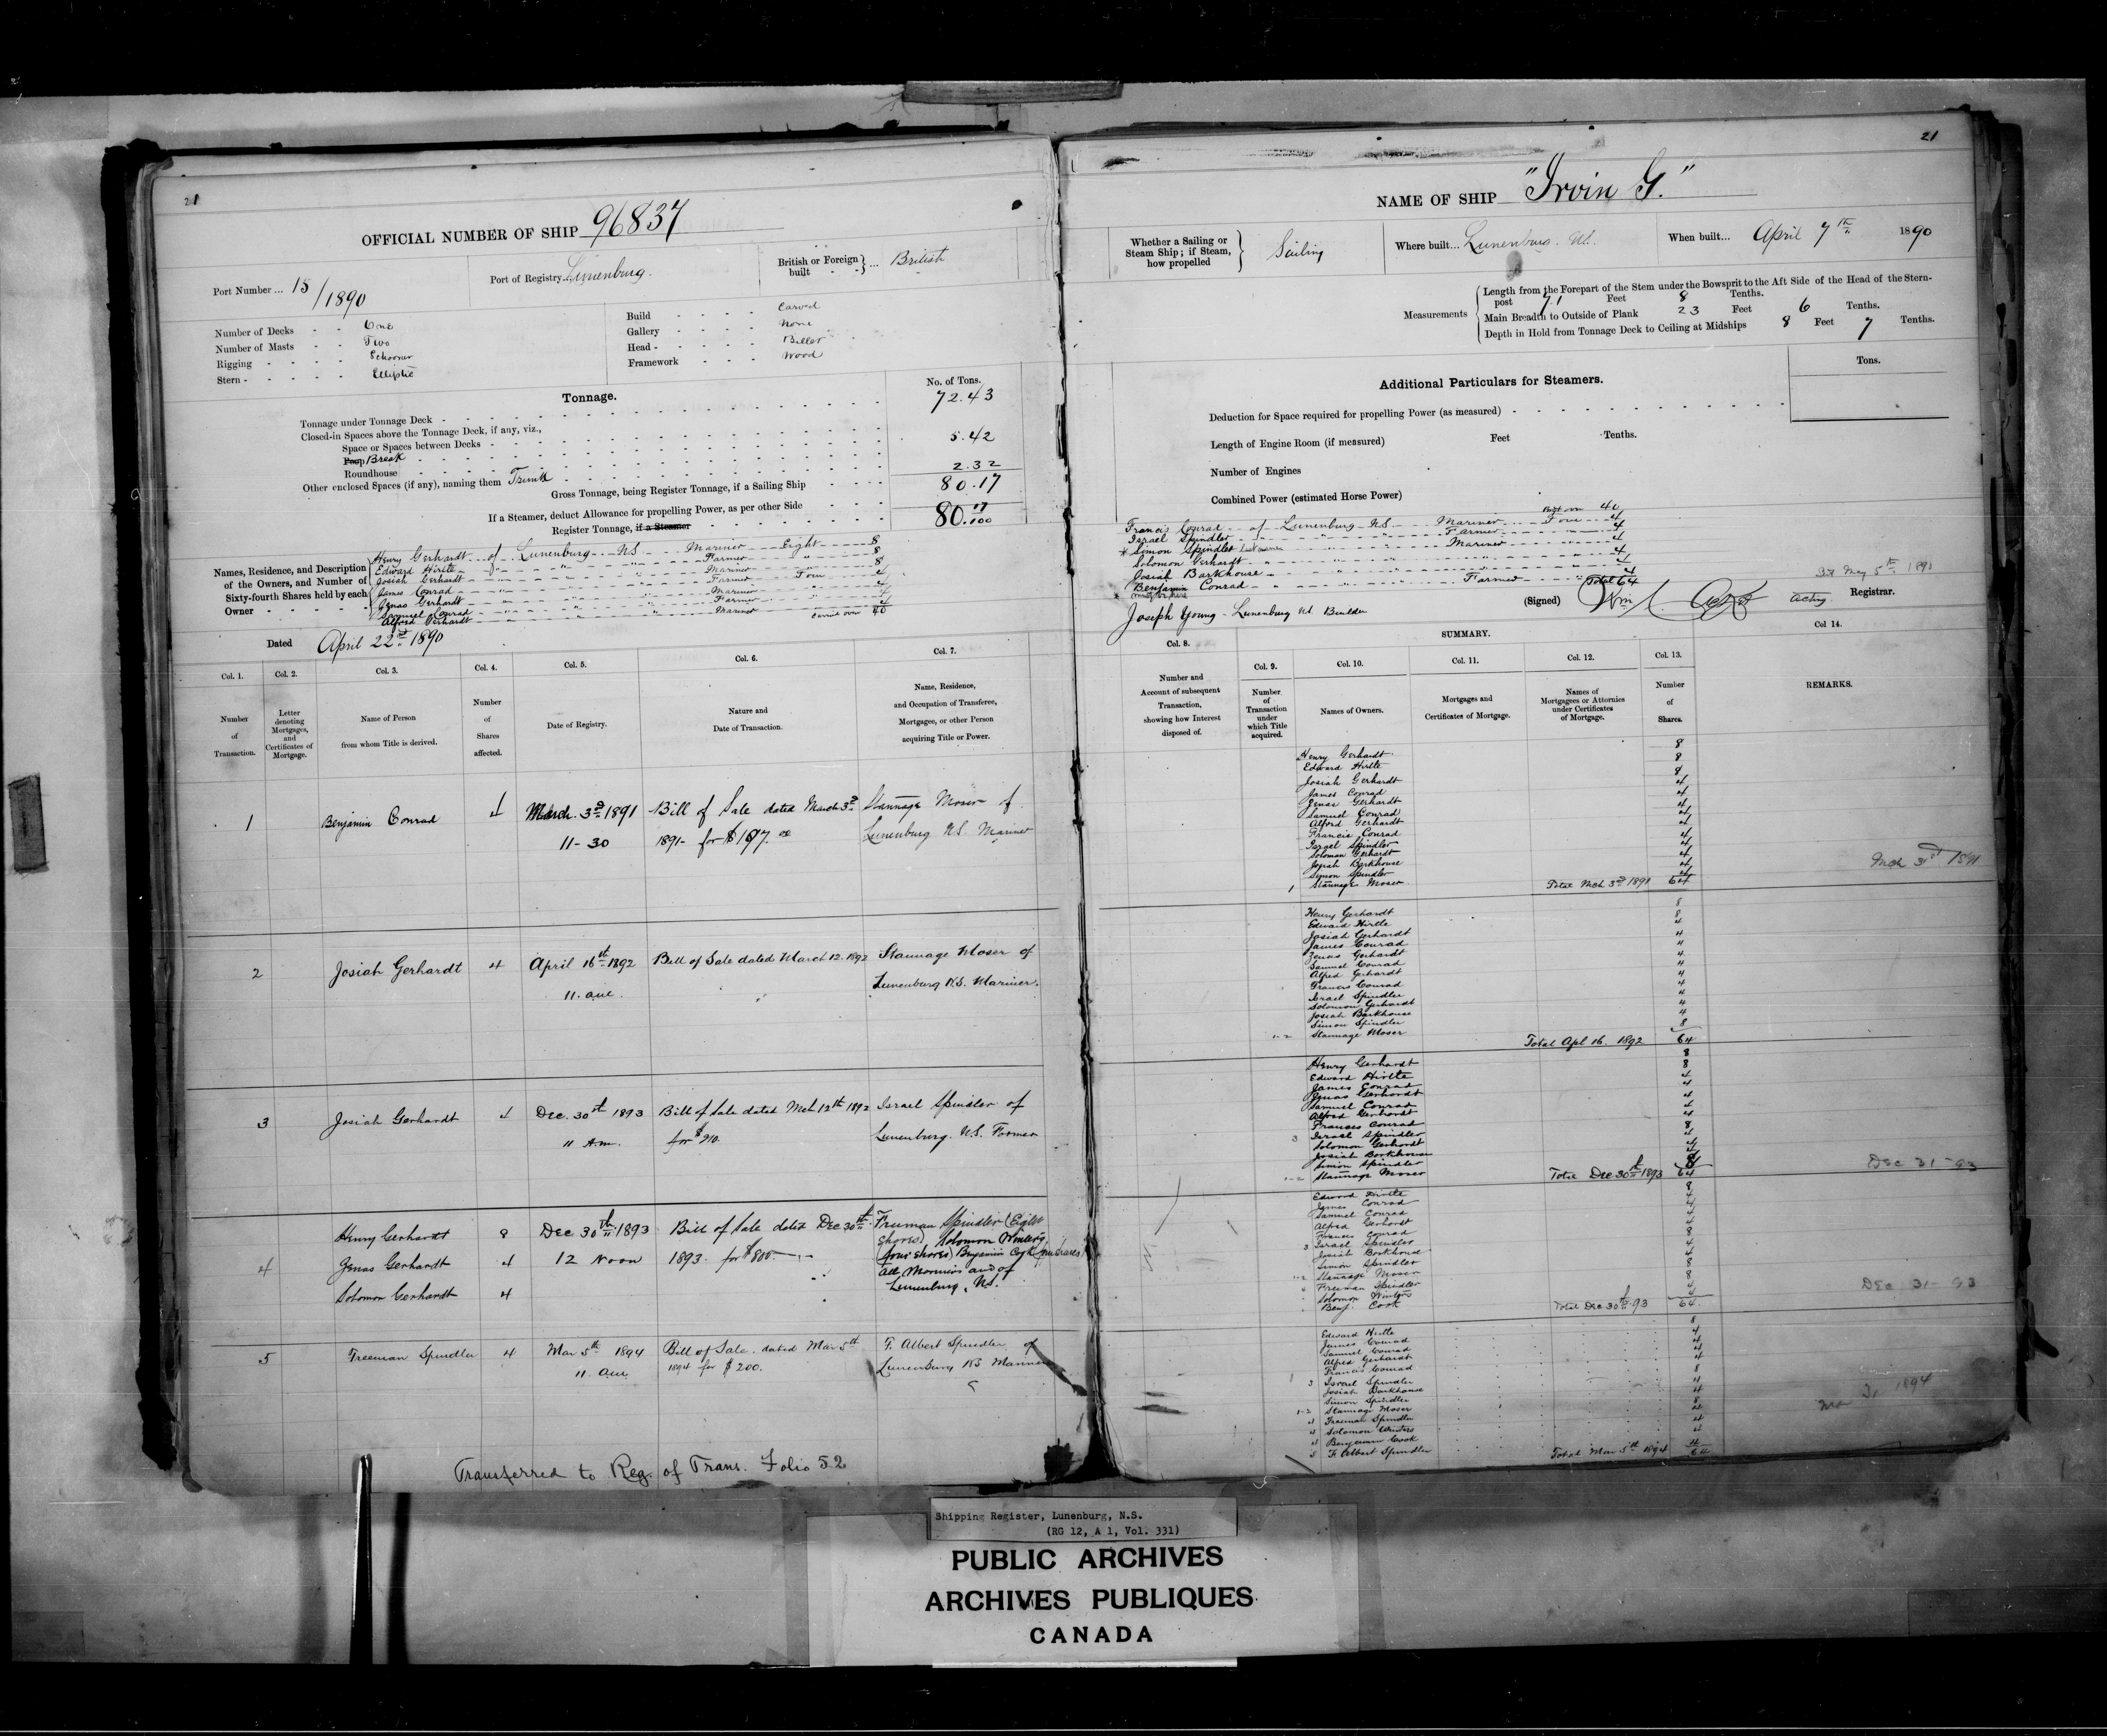 21
OFFICIAL NUMBER OF SHIP 96837
Port Number ... 15/1890
Port of Registry Lunenburg.
British or Foreign built ... British
Number of Decks - - One
Number of Masts - - Two
Rigging - - - - Schooner
Stern - - - - - Elliptic
Build - - - - Carvel
Gallery - - - - None
Head - - - - - Billet
Framework - - - Wood
Tonnage.
No. of Tons.
Tonnage under Tonnage Deck 72.43
Closed-in Spaces above the Tonnage Deck, if any, viz.,
Space or Spaces between Decks
Poop Break 5.42
Roundhouse
Other enclosed Spaces (if any), naming them Trunk 2.32
Gross Tonnage, being Register Tonnage, if a Sailing Ship 80.17
If a Steamer, deduct Allowance for propelling Power, as per other Side
Register Tonnage, if a Steamer 80.17/100
Names, Residence, and Description of the Owners, and Number of Sixty-fourth Shares held by each Owner
Henry Gerhardt of Lunenburg NS Mariner Eight 8
Edward Hirtle " " Farmer " 8
Josiah Gerhardt " " Mariner " 8
James Conrad " " Farmer Four 4
Zenas Gerhardt " " Mariner " 4
Samuel Conrad " " Farmer " 4
Alfred Gerhardt " " Mariner 4
carried over 40
Dated April 22nd 1890
Col. 1. Col. 2. Col. 3. Col. 4. Col. 5. Col. 6. Col. 7.
Number of Transaction.
Letter denoting Mortgages, and Certificates of Mortgage.
Name of Person from whom Title is derived.
Number of Shares affected.
Date of Registry.
Nature and Date of Transaction.
Name, Residence, and Occupation of Transferee, Mortgagee, or other Person acquiring Title or Power.
1 Benjamin Conrad 4 March 3rd 1891 Bill of Sale dated March 3rd Stannage Moser of
11-30 1891- for $197.00 Lunenburg N.S. Mariner
2 Josiah Gerhardt 4 April 16th 1892 Bill of Sale dated March 12. 1892 Stannage Moser of
11. am. Lunenburg N.S. Mariner.
3 Josiah Gerhardt 4 Dec. 30th 1893 Bill of Sale dated Mch 12th 1892 Israel Spindler of
11 A.m. for $210. Lunenburg. N.S. Farmer
4 Henry Gerhardt 8 Dec 30th 1893 Bill of Sale dated Dec 30th Freeman Spindler (Eight
Zenas Gerhardt 4 12 Noon 1893. for $800 shares) Solomon Winters
Solomon Gerhardt 4 (four shares) Benjamin Cook (four shares)
All Mariners and of
Lunenburg, N.S.
5 Freeman Spindler 4 Mar 5th 1894 Bill of Sale. dated Mar 5th F. Albert Spindler of
11. am 1894 for $200. Lunenburg NS Mariner
Transferred to Reg. of Trans. Folio 52
21
NAME OF SHIP "Irvin G."
Whether a Sailing or Steam Ship; if Steam, how propelled } Sailing
Where built... Lunenburg. NS.
When built... April 7th 1890
Measurements
Length from the Forepart of the Stem under the Bowsprit to the Aft Side of the Head of the Stern-
post 71 Feet 8 Tenths.
Main Breadth to Outside of Plank 23 Feet 6 Tenths.
Depth in Hold from Tonnage Deck to Ceiling at Midships 8 Feet 7 Tenths.
Additional Particulars for Steamers.
Tons.
Deduction for Space required for propelling Power (as measured)
Length of Engine Room (if measured) Feet Tenths.
Number of Engines
Combined Power (estimated Horse Power)
40
Francis Conrad of Lunenburg N.S. Mariner Four 4
Israel Spindler " " Farmer " 4
Simon Spindler " " Mariner " 4
Solomon Gerhardt " " " 4
Josiah Barkhouse " " " 4
Benjamin Conrad " " Farmer " 4
Total 64
Joseph Young - Lunenburg NS Builder
(Signed) Acting Registrar.
May 5th 1890
SUMMARY.
Col. 8. Col. 9. Col. 10. Col. 11. Col. 12. Col. 13. Col 14.
Number and Account of subsequent Transaction, showing how Interest disposed of.
Number of Transaction under which Title acquired.
Names of Owners.
Mortgages and Certificates of Mortgage.
Names of Mortgagees or Attornies under Certificates of Mortgage.
Number of Shares.
REMARKS.
Henry Gerhardt 8
Edward Hirtle 8
Josiah Gerhardt 8
James Conrad 4
Zenas Gerhardt 4
Samuel Conrad 4
Alfred Gerhardt 4
Francis Conrad 4
Israel Spindler 4
Soloman Gerhardt 4
Josiah Barkhouse 4
Simon Spindler 4
1 Stannage Moser 4
Total Mch 3rd 1891 64
Mch 31st 1891
Henry Gerhardt 8
Edward Hirtle 8
Josiah Gerhardt 4
James Conrad 4
Zenas Gerhardt 4
Samuel Conrad 4
Alfred Gerhardt 4
Francis Conrad 4
Israel Spindler 4
Solomon Gerhardt 4
Josiah Barkhouse 4
Simon Spindler 4
1-2 Stannage Moser 8
Total Apl 16. 1892 64
Henry Gerhardt 8
Edward Hirtle 8
James Conrad 4
Zenas Gerhardt 4
Samuel Conrad 4
Alfred Gerhardt 4
Frances Conrad 4
3 Israel Spindler 8
Solomon Gerhardt 4
Josiah Barkhouse 4
Simon Spindler 4
1-2 Stannage Moser 8
Total Dec 30th 1893 64
Dec 31-93
Edward Hirtle 8
James Conrad 4
Samuel Conrad 4
Alfred Gerhardt 4
Frances Conrad 4
3 Israel Spindler 8
Josiah Barkhouse 4
Simon Spindler 4
1-2 Stannage Moser 8
4 Freeman Spindler 8
Solomon Winters 4
Benj. Cook 4
Total Dec 30th 93 64
Dec 31-93
Edward Hirtle 8
James Conrad 4
Samuel Conrad 4
Alfred Gerhardt 4
Francis Conrad 4
3 Israel Spindler 8
Josiah Barkhouse 4
Simon Spindler 4
1-2 Stannage Moser 8
4 Freeman Spindler 4
4 Solomon Winters 4
4 Benjamin Cook 4
5 F. Albert Spindler 4
Total Mar 5th 1894 64
31 1894
Shipping Register, Lunenburg, N.S.
(RG 12, A 1, Vol. 331)
PUBLIC ARCHIVES
ARCHIVES PUBLIQUES
CANADA